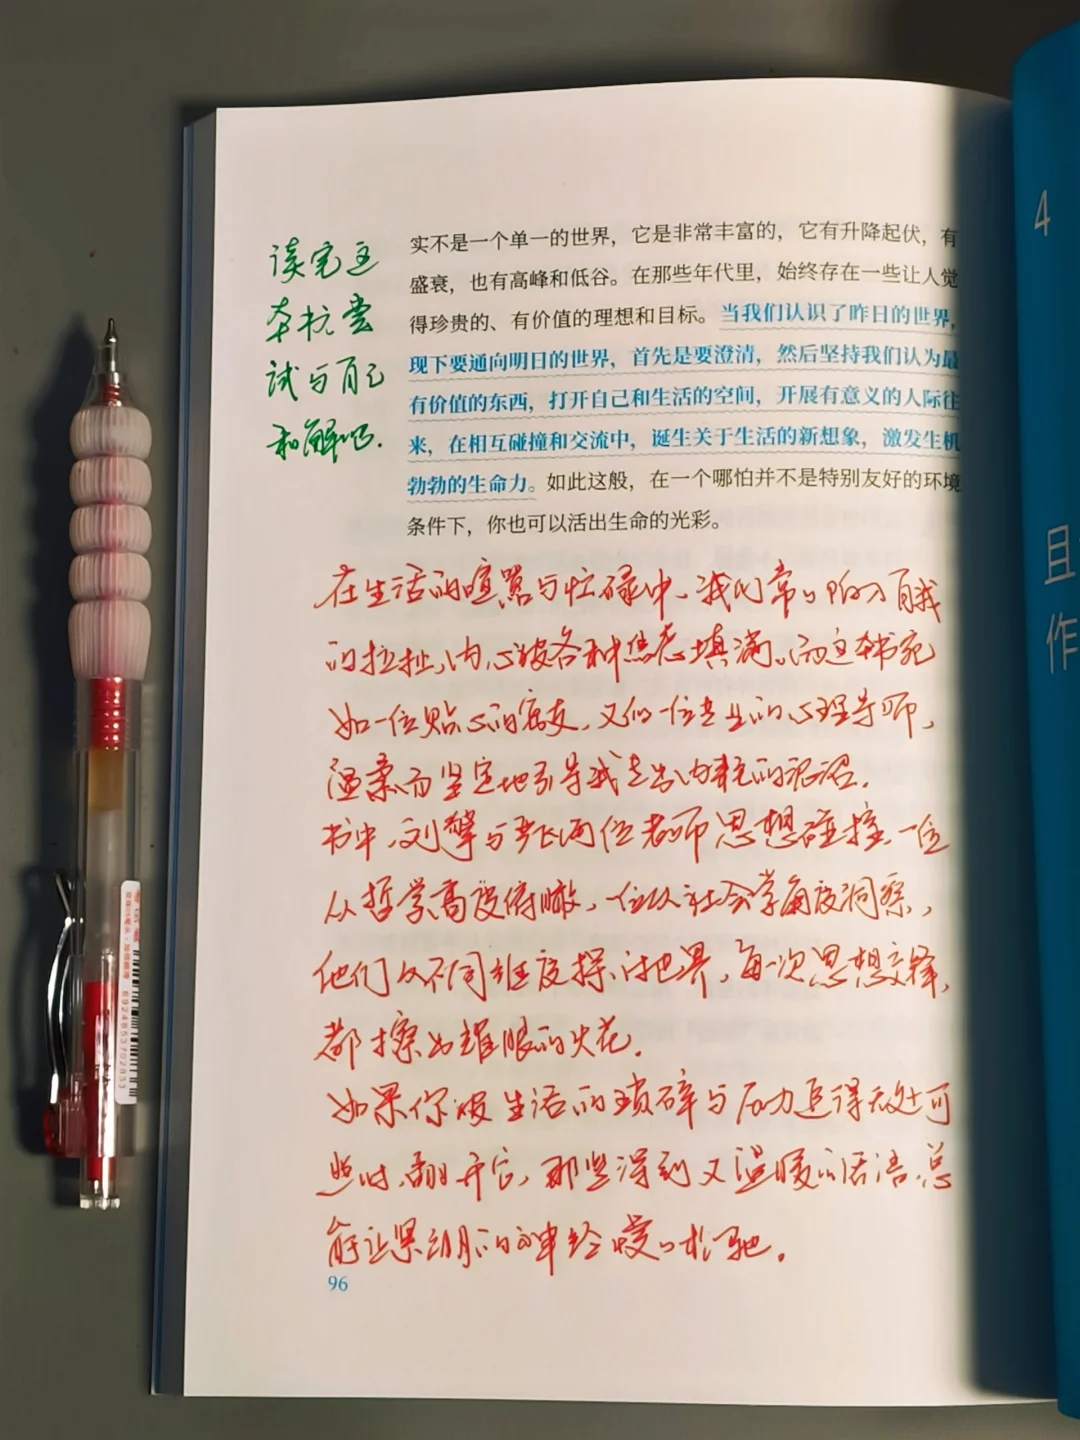 读完这
本就尝
试与自己
和解吧.
实不是一个单一的世界，它是非常丰富的，它有升降起伏，有
盛衰，也有高峰和低谷。在那些年代里，始终存在一些让人觉
得珍贵的、有价值的理想和目标。当我们认识了昨日的世界，
现下要通向明日的世界，首先是要澄清，然后坚持我们认为最
有价值的东西，打开自己和生活的空间，开展有意义的人际往
来，在相互碰撞和交流中，诞生关于生活的新想象，激发生机
勃勃的生命力。如此这般，在一个哪怕并不是特别友好的环境
条件下，你也可以活出生命的光彩。
在生活的喧嚣与忙碌中、我们常常陷入自我
的拉扯,内心被各种焦虑填满。而这本书宛
如一位贴心的密友,又似一位专业的心理导师,
温柔而坚定地引导我走出内耗的沼泽.
书中,刘擎与 两位老师思想碰撞,一位
从哲学高度俯瞰,一位从社会学角度洞察,
他们从不同维度探讨世界,每一次思想交锋,
都擦出耀眼的火花.
如果你被生活的琐碎与压力追得无处可
逃时,翻开它,那些深刻又温暖的话语,总
能让紧绷的神经慢慢松弛.
96
4
且
作
6924653702833